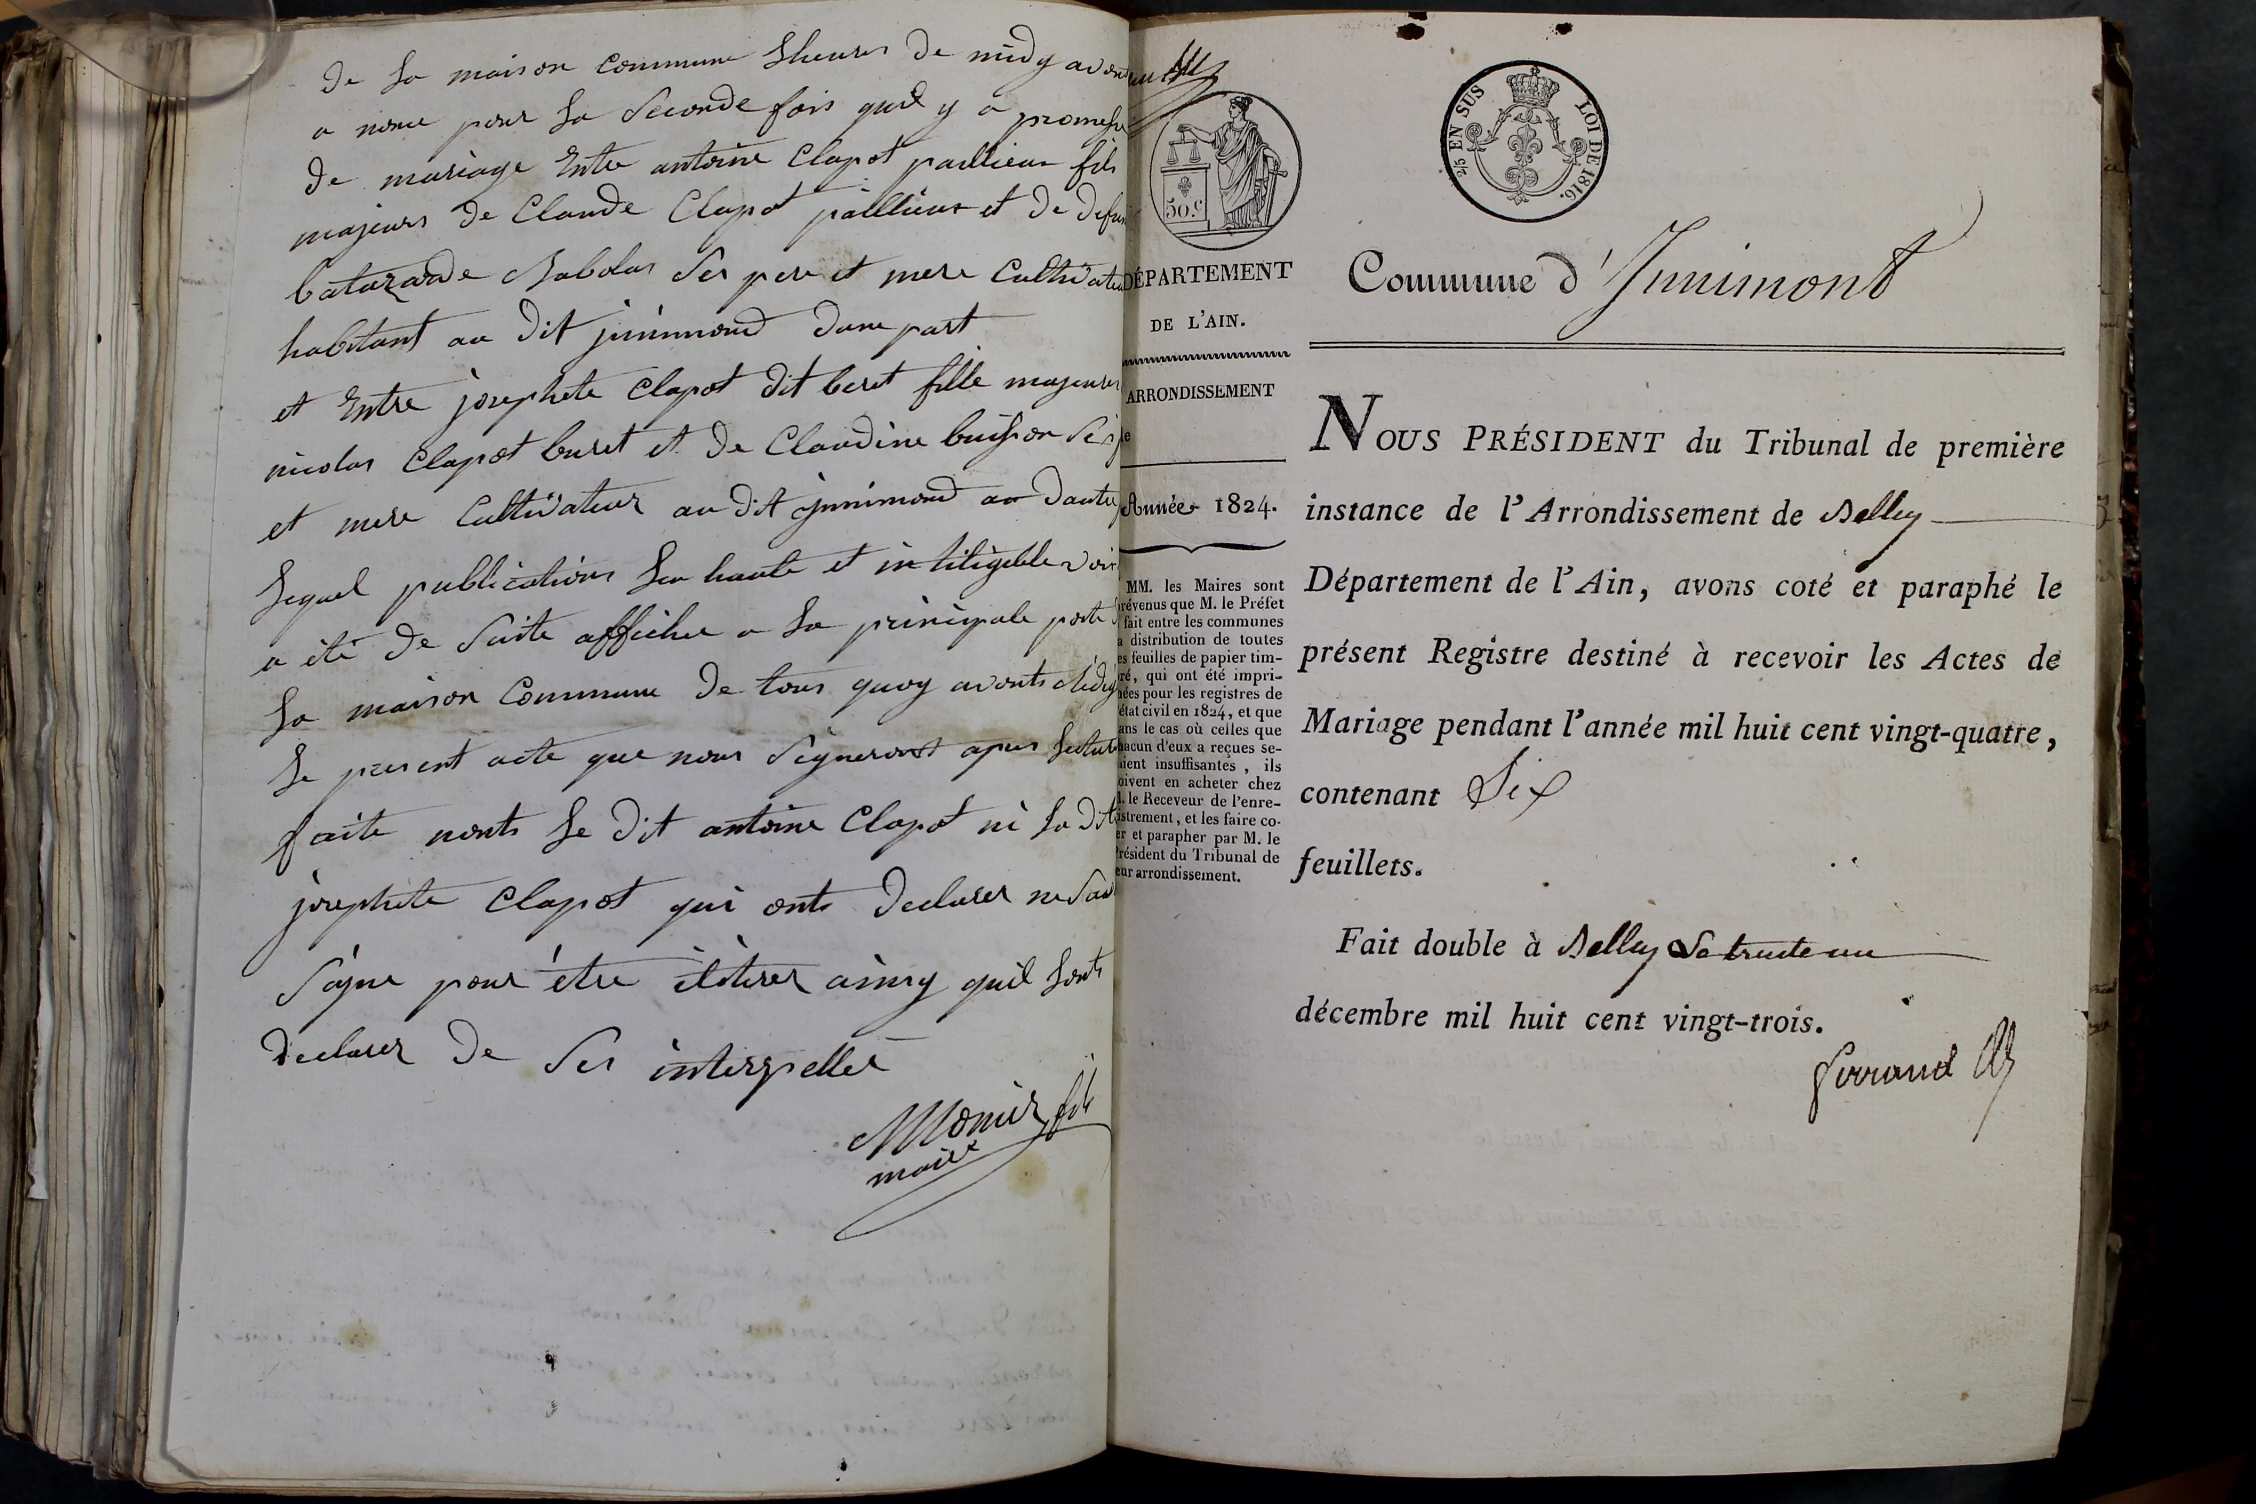 de la maison commune lheures de midy avons
a nonce pour la seconde fois quil y a promesse
de mariage Entre antoine Clapot paillieur fils
majeurs de Claude Clapot paillieur et de defun
batazarde Rabolas ses pere et mere Cultivateu
habitant au dit jnnimond dune part
et Entre josephete Clapot dit beret fille majeures
nicolas Clapot buret et de Claudine buisson ses p
et mere Cultivateur au dit jnnimond au dautre
lequel publications lu haute et intiligeble voix
a été de suite affichee a la principale porte d
la maison Commune de tous quoy avonts rédig
le present acte que nous signeronst apres lecture
faite nonts le dit antoine Clapot ni la dit
josephete Clapot qui onts declarer ne sav
signe pour être ilitirer ainsy quil lonts
declarer de ses interpeller
Monier fils
maire
50.c
DÉPARTEMENT
DE L'AIN.
ARRONDISSEMENT
de
Année 1824.
MM. les Maires sont
prévenus que M. le Préfet
fait entre les communes
la distribution de toutes
les feuilles de papier tim-
bré, qui ont été impri-
mées pour les registres de
l'état civil en 1824, et que
dans le cas où celles que
chacun d'eux a reçues se-
raient insuffisantes, ils
doivent en acheter chez
M. le Receveur de l'enre-
gistrement, et les faire co-
ter et parapher par M. le
Président du Tribunal de
leur arrondissement.
2/5 EN SUS LOI DE 1816.
Commune d'Innimont
NOUS PRÉSIDENT du Tribunal de première
instance de l'Arrondissement de Belley
Département de l'Ain, avons coté et paraphé le
présent Registre destiné à recevoir les Actes de
Mariage pendant l'année mil huit cent vingt-quatre,
contenant Six
feuillets.
Fait double à Belley Le trente un
décembre mil huit cent vingt-trois.